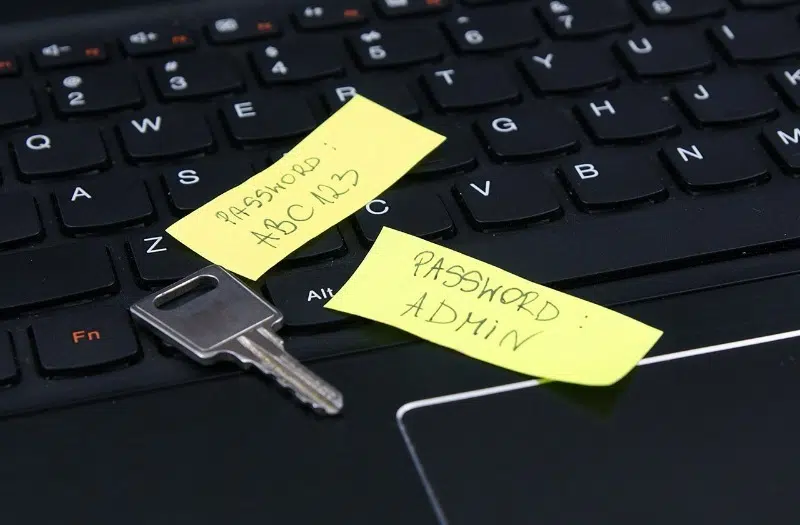 2 3 4 5 6 7 8
Q W E R T Y U I
A S G H J K
Z C V B N M
Fn Alt
PASSWORD:
ABC 123
PASSWORD:
ADMIN